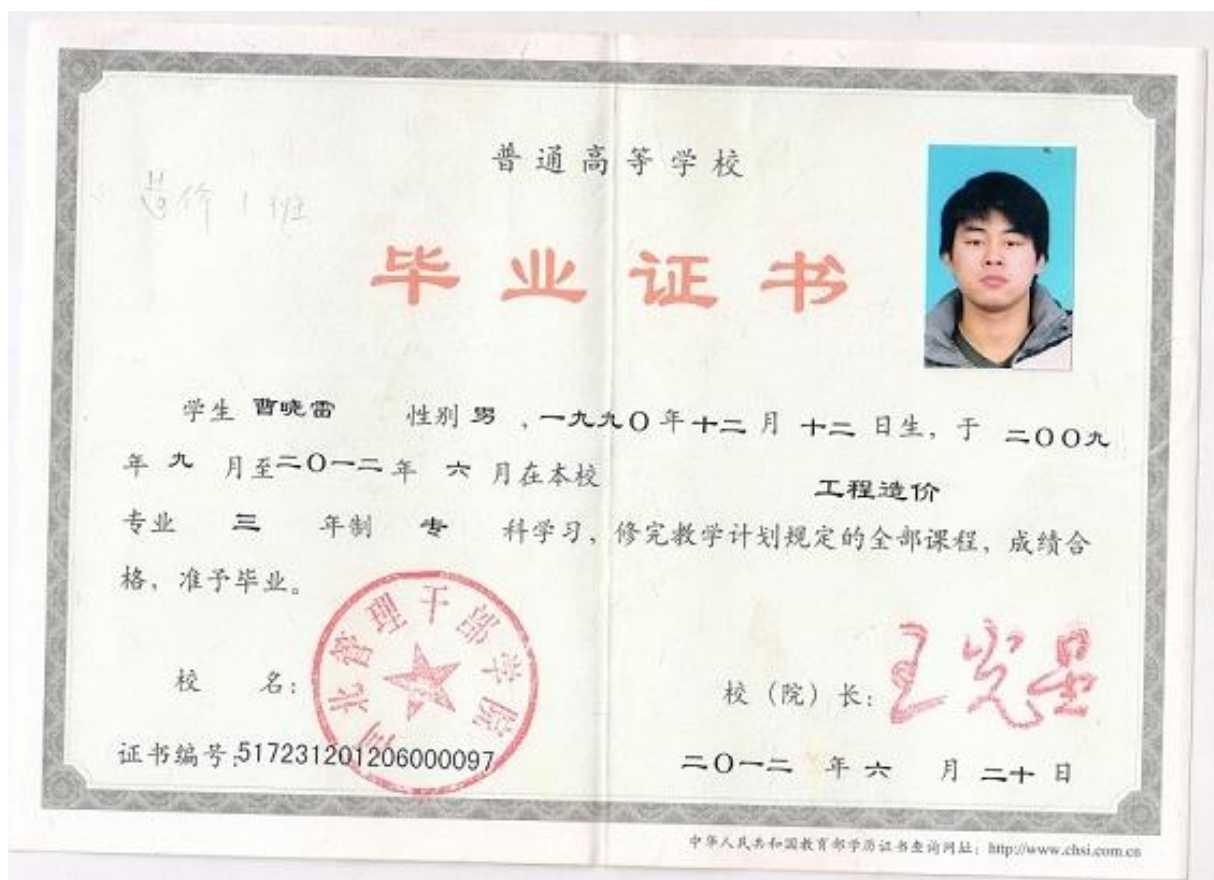 普通高等学校
造价1班
毕业证书
学生 曹晓雷 性别 男 ,一九九〇年十二月 十二 日生, 于 二〇〇九
年 九 月至二〇一二年 六 月在本校 工程造价
专业 三 年制 专 科学习, 修完教学计划规定的全部课程, 成绩合
格, 准予毕业。
北管理干部学院
校 名:
校 (院) 长:
证书编号:517231201206000097
二〇一二 年 六 月 二十 日
中华人民共和国教育部学历证书查询网址: http://www.chsi.com.cn